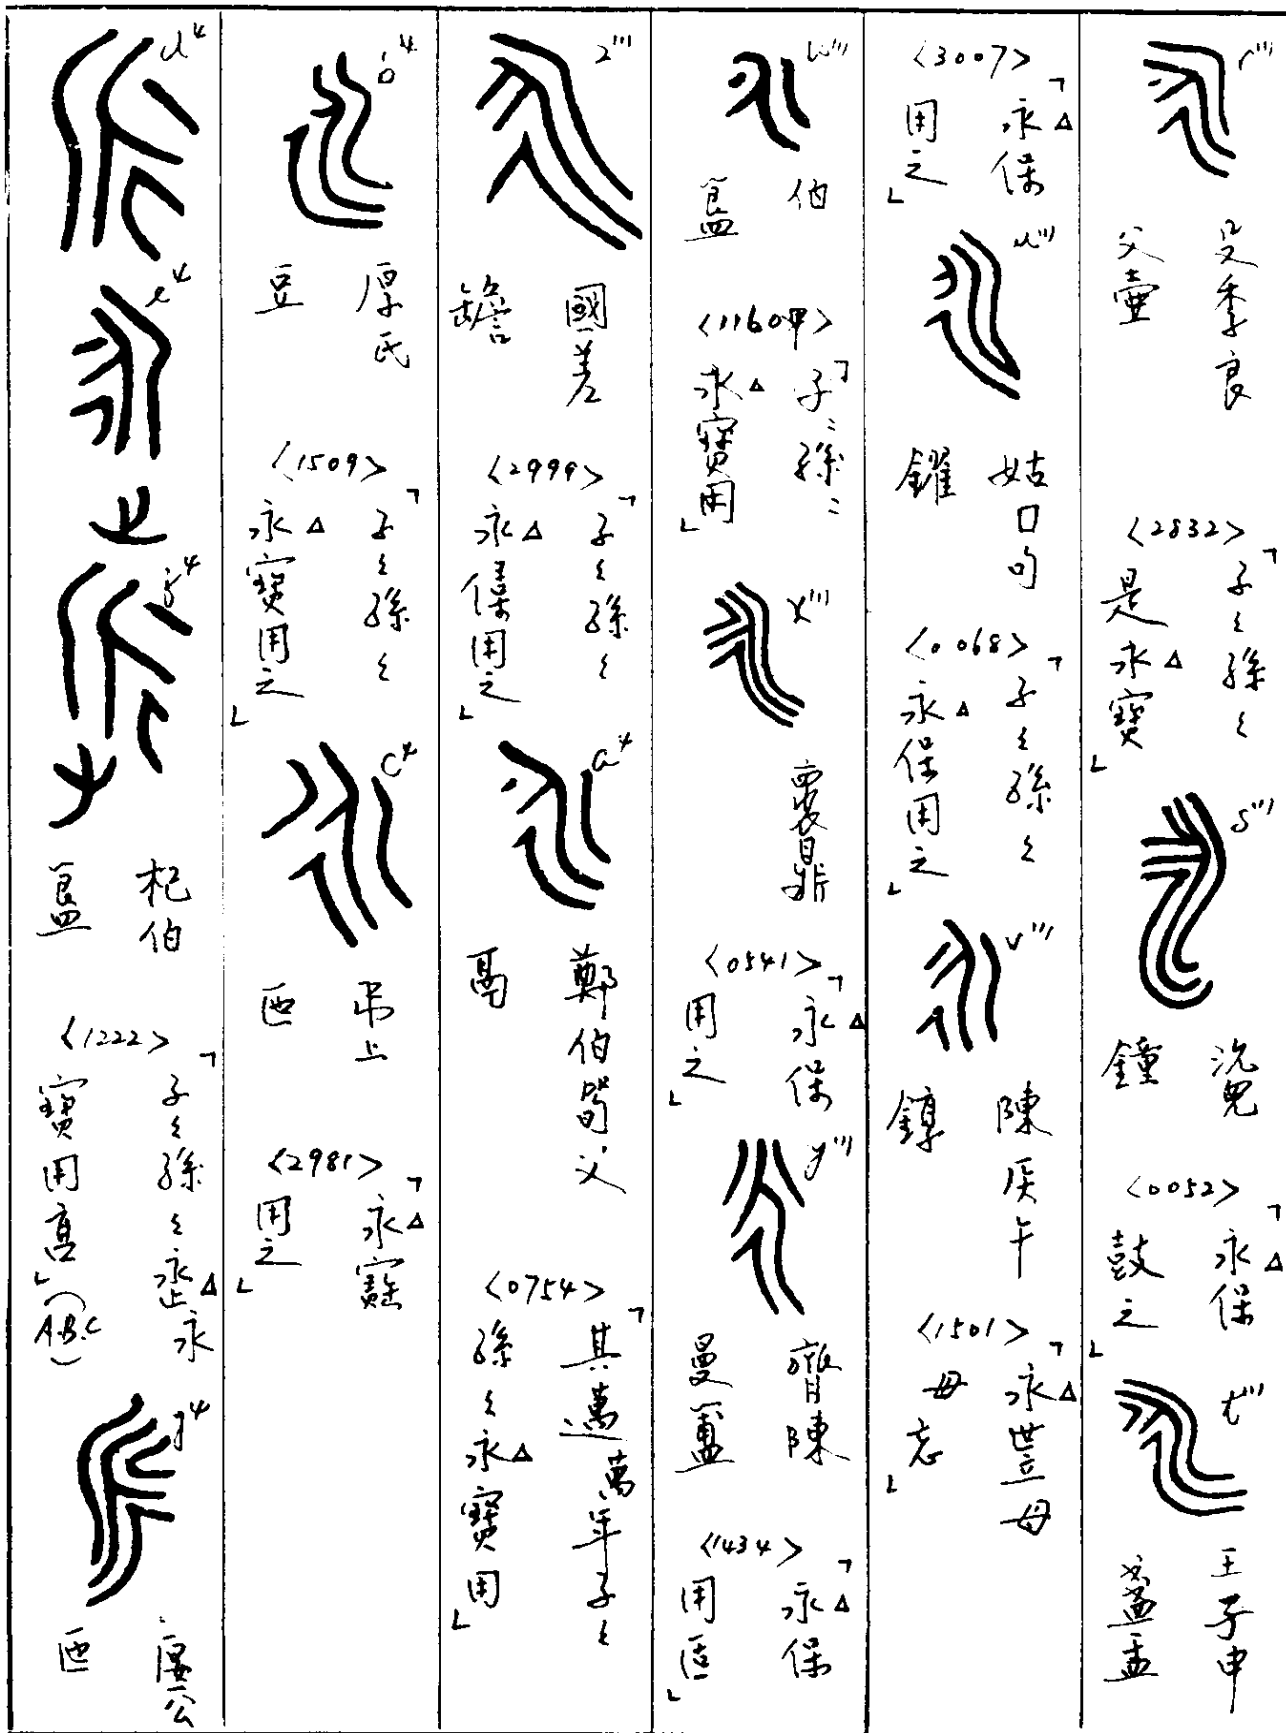 r'''
父壺
<2832>
「子〻孫〻
是永△寶」
s'''
鐘
<0052>
「永△保
鼓之」
t'''
王子申
盞盂
<3007>
「永△保
用之」
u'''
姑口句
鑃
<0068>
「子〻孫〻
永△保用之」
v'''
陳侯午
錞
<1501>
「永△世母
忘」
w'''
伯
簋
<1160甲>
「子〻孫〻
永△寶用」
x'''
褱鼎
<0541>
「永△保
用之」
y'''
齊陳
曼
<1434>
「永△保
用」
z'''
國差
<2999>
「子〻孫〻
永△保用之」
a⁴
鄭伯筍父
鬲
<0754>
「其萬年子〻
孫〻永△寶用」
b⁴
厚氏
豆
<1509>
「子〻孫〻
永△寶用之」
c⁴
弔上
匜
<2981>
「永△寶
用之」
d⁴
e⁴
f⁴
杞伯
簋
<1222>
「子〻孫〻 △永
寶用享」(A.B.C)
g⁴
公
匜